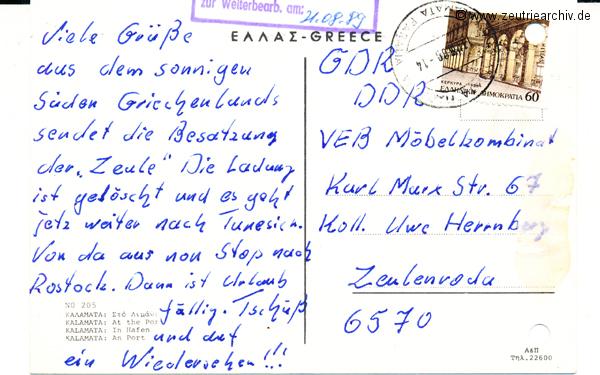 © www.zeutriearchiv.de
zur Weiterbearb. am:
21.08.89
ΕΛΛΑΣ-GREECE
Viele Grüße
aus dem sonnigen
Süden Griechenlands
sendet die Besatzung
der „Zeule" Die Ladung
ist gelöscht und es geht
jetz weiter nach Tunesien.
Von da aus non Stop nach
Rostock. Dann ist Urlaub
fällig. Tschüß
und auf
ein Wiedersehen!!!
NO 205
ΚΑΛΑΜΑΤΑ: Στό Λιμάνι
KALAMATA: At the Port
KALAMATA: In Hafen
KALAMATA: An Port
GDR
DDR
VEB Möbelkombinat
Karl Marx Str. 67
Koll. Uwe Herrnberg
Zeulenroda
6570
ΔΗΜΟΚΡΑΤΙΑ 60
Α&Π
Τηλ. 22600